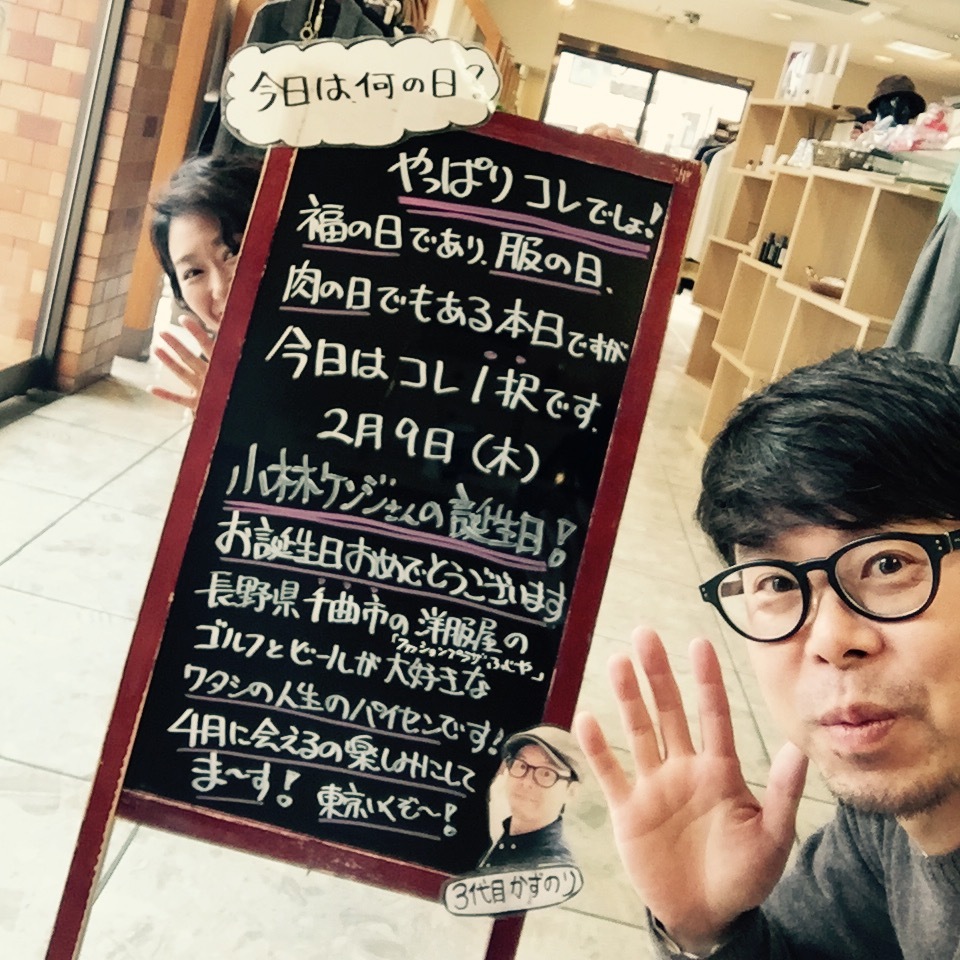 今日は何の日?
やっぱりコレでしょ!
福の日であり、服の日、
肉の日でもある本日ですが
今日はコレ1択です。
2月9日(木)
小林ケンジさんの誕生日!
お誕生日おめでとうございます
長野県千曲市の洋服屋の
「ファッションプラザふじや」
ゴルフとビールが大好きな
ワタシの人生のパイセンです!
4月に会えるの楽しみにして
ま〜す! 東京いくぞ〜!
3代目かずのり